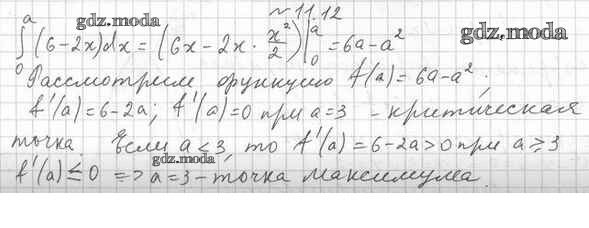 № 11.12
gdz.moda
gdz.moda
∫₀ᵃ (6-2x)dx = (6x - 2x · x²/2)|₀ᵃ = 6a - a²
Рассмотрим функцию f(a) = 6a - a²;
f'(a) = 6-2a; f'(a) = 0 при a = 3 - критическая
точка. Если a < 3, то f'(a) = 6-2a > 0 при a ⩾ 3
gdz.moda
f'(a) ≤ 0 => a = 3 - точка максимума.